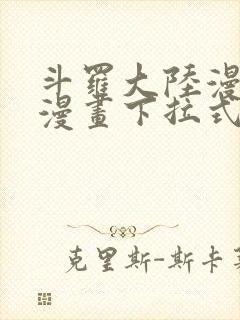 斗羅大陸漫
漫畫下拉式
克里斯-斯卡